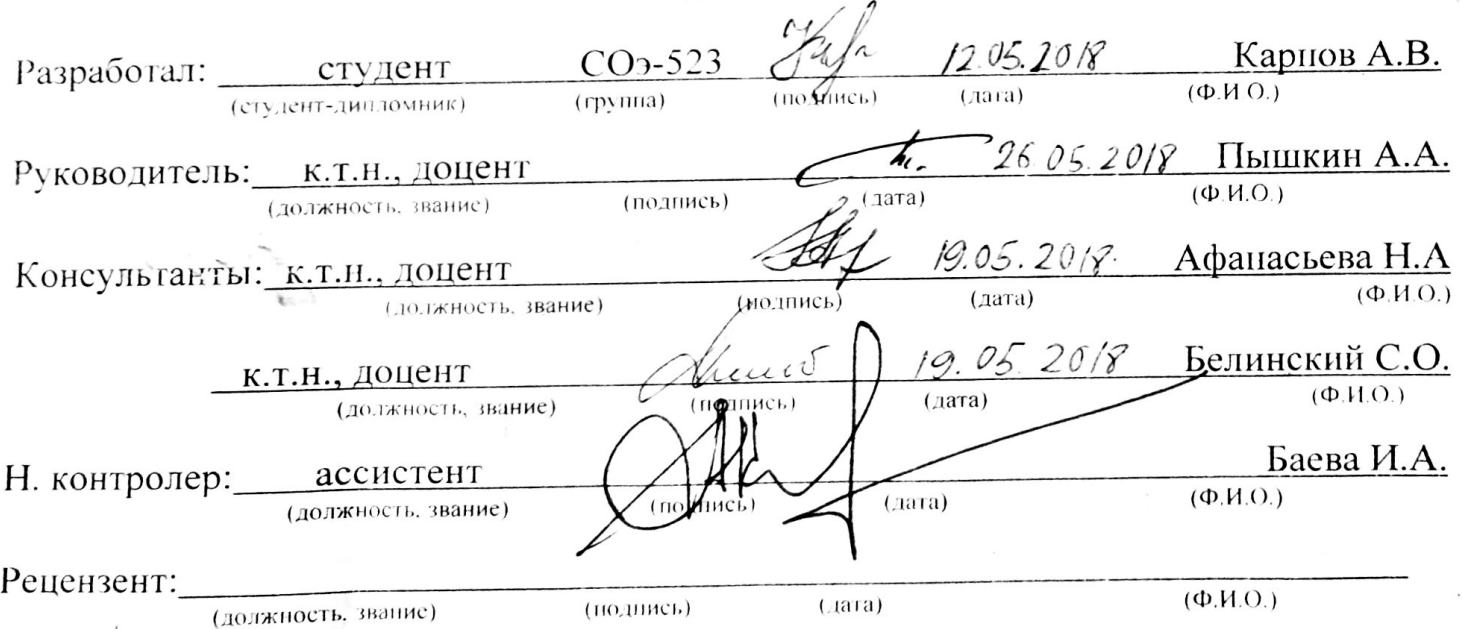 Разработал: студент СОэ-523 12.05.2018 Карпов А.В.
(студент-дипломник) (группа) (подпись) (дата) (Ф.И.О.)
Руководитель: к.т.н., доцент 26.05.2018 Пышкин А.А.
(должность, звание) (подпись) (дата) (Ф.И.О.)
Консультанты: к.т.н., доцент 19.05.2018. Афанасьева Н.А
(должность, звание) (подпись) (дата) (Ф.И.О.)
к.т.н., доцент 19.05.2018 Белинский С.О.
(должность, звание) (подпись) (дата) (Ф.И.О.)
Н. контролер: ассистент Баева И.А.
(должность, звание) (подпись) (дата) (Ф.И.О.)
Рецензент:
(должность, звание) (подпись) (дата) (Ф.И.О.)